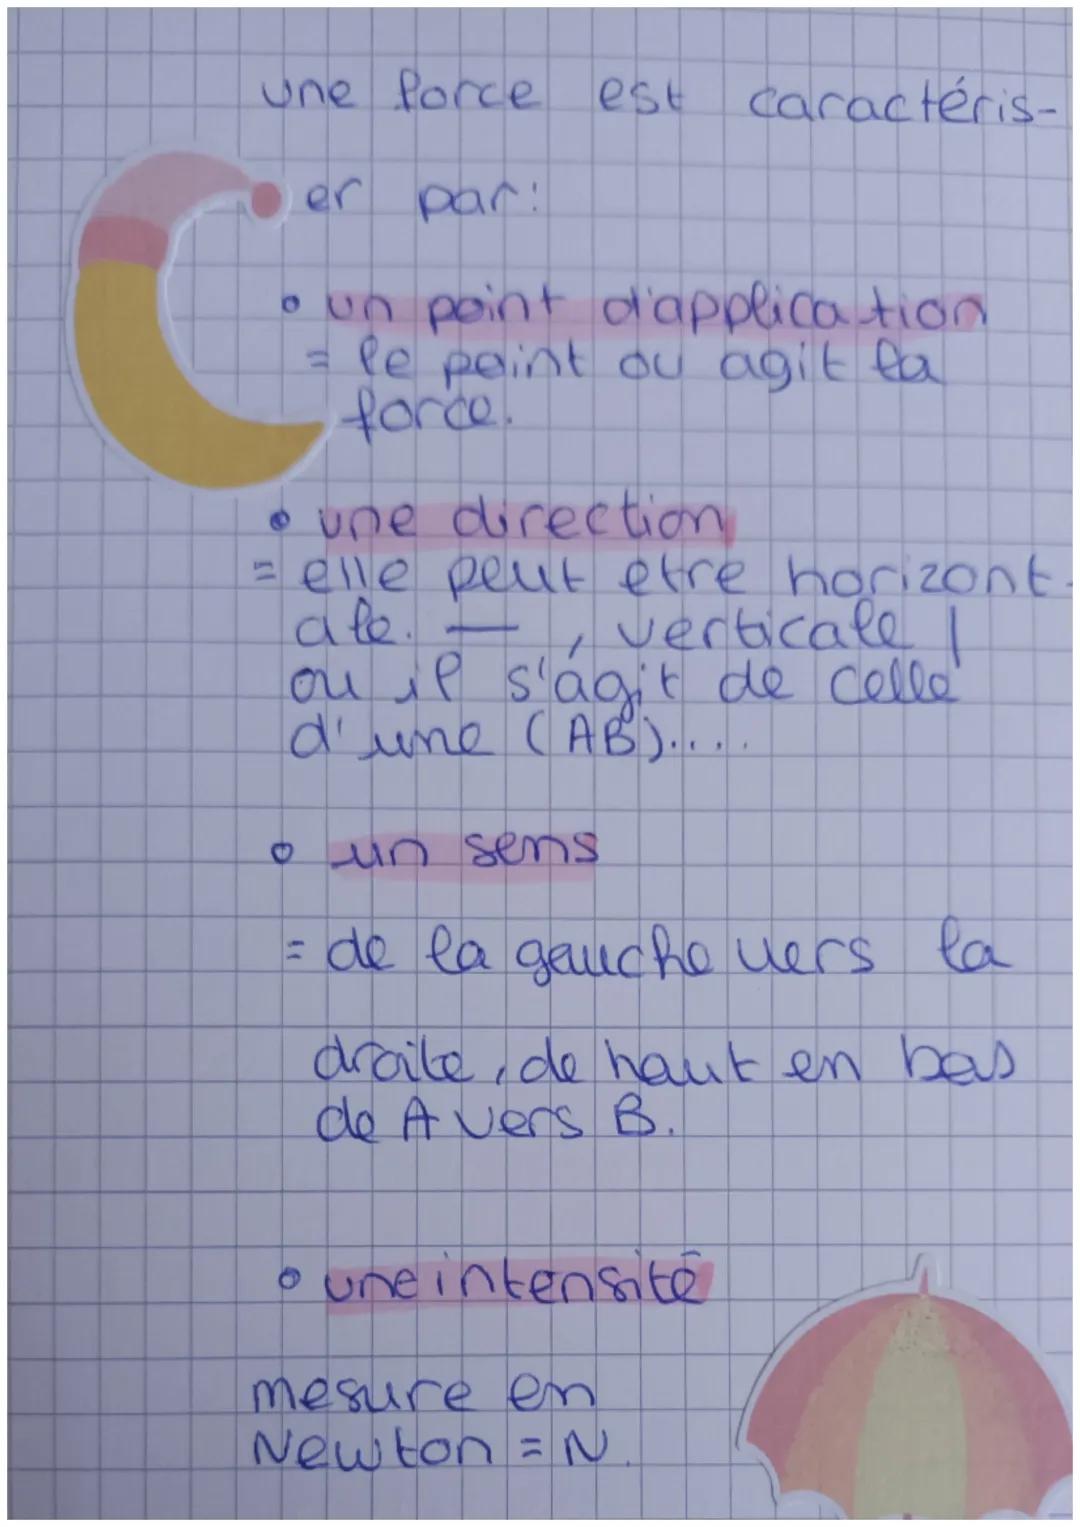 une force est caractéris-
er par:
• un point d'application
= le point ou agit la
force.
• une direction
= elle peut etre horizont-
ale. — , verticale |
ou il s'agit de celle
d'une (AB)....
• un sens
= de la gauche vers la
droite, de haut en bas
de A vers B.
• une intensité
mesure en
Newton = N.